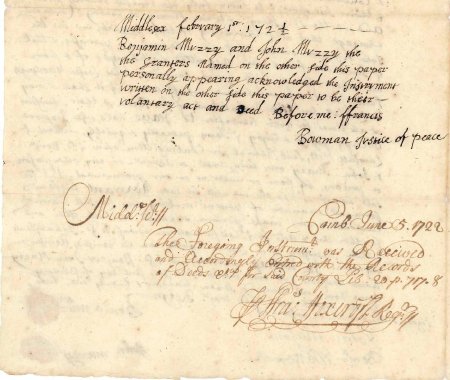 Middlesex february 1st: 172½
Benjamin Muzzy and John Muzzy the
the Granters Named on the other side this paper
personally appearing acknowledged the Instrument
written on the other side this paper to be their
voluntary act and Deed Before me: ffrancis
Bowman Justice of peace
Midd:
Camb. June 5. 1722
The Foregoing Instrumt. was Received
and Accordingly with the Records
of Deeds &c for Said County Lib. 20. p. 717. 8
Fra: Regr